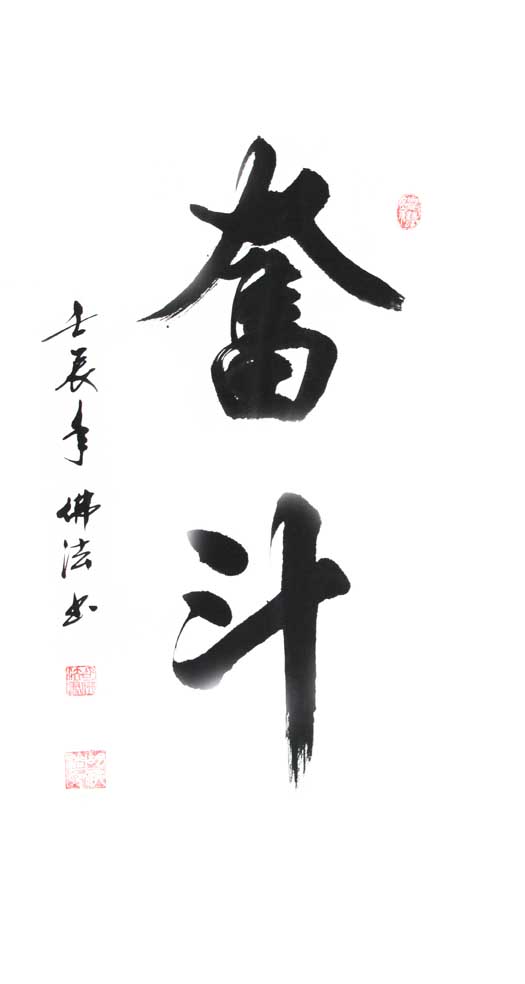 奮斗
壬辰年 佛法书